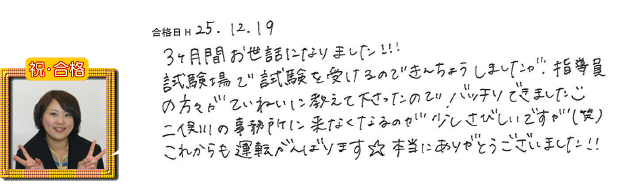 合格日 H 25.12.19
祝・合格
3ヶ月間お世話になりました!!!
試験場で試験を受けるのできんちょうしましたが、指導員
の方々がていねいに教えて下さったので、バッチリできました
二俣川の事務所に来なくなるのが少しさびしいですが(笑)
これからも運転がんばります☆本当にありがとうございました!!